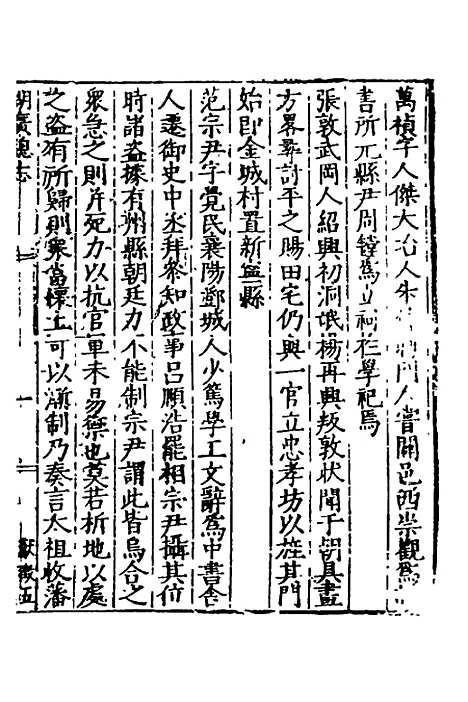 萬禎字人傑大冶人朱門人嘗開邑西崇觀爲
書所元縣尹周鏜爲立祠在學祀焉
張敦武岡人紹興初洞氓楊再興叛敦狀聞于朝具畫
方畧尋討平之賜田宅仍與一官立忠孝坊以旌其門
始即金城村置新寧縣
范宗尹字覺民襄陽鄧城人少篤學工文辭爲中書舍
人遷御史中丞拜參知政事呂頤浩罷相宗尹攝其位
時諸盗據有州縣朝廷力不能制宗尹謂此皆烏合之
衆急之則并死力以抗官軍未易熊也莫若析地以處
之盗有所歸則衆當懷土可以漸制乃奏言太祖收藩
湖廣總志
一
獻徵五